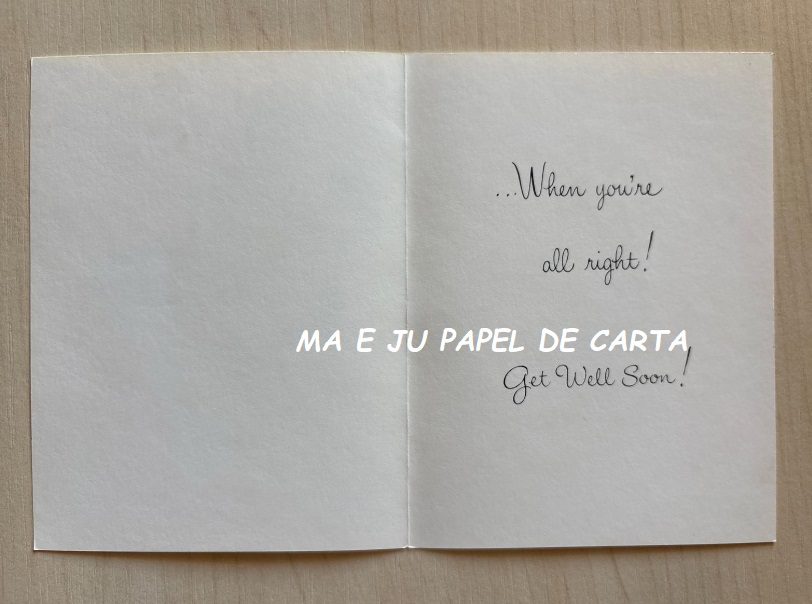 ...When you're
all right!
MA E JU PAPEL DE CARTA
Get Well Soon!